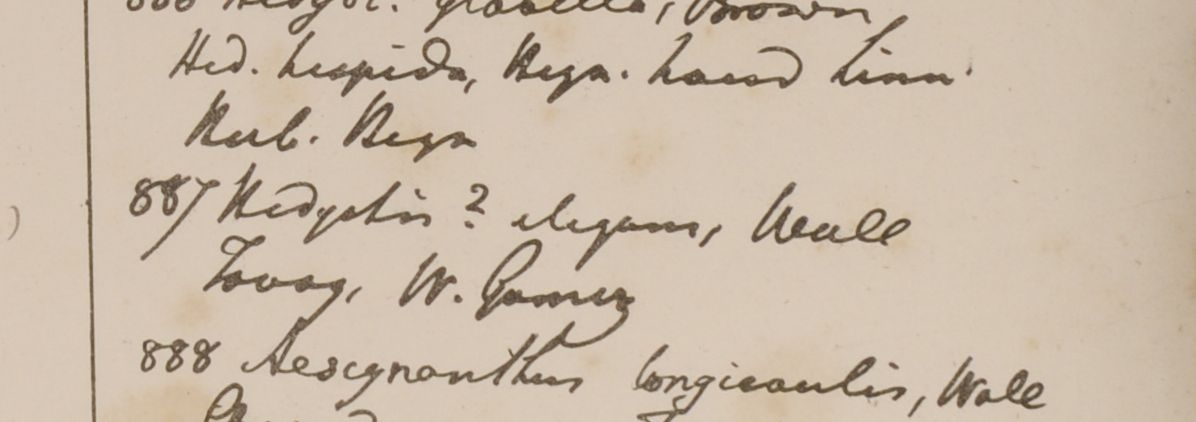 Hedyot. glabella, Brown,
Hed. hispida, Heyn. haud Linn.
Herb. Heyn
887 Hedyotis? elegans, Wall
Tavoy, W. Gomez
888 Aescynanthus longicaulis, Wall